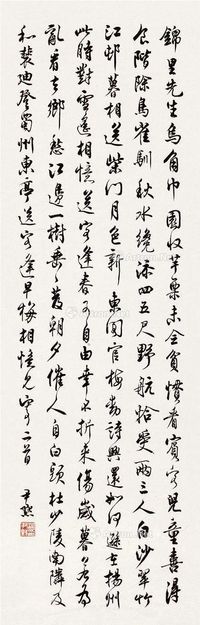 錦里先生烏角巾園收芋栗未全貧慣看賓客兒童喜得
食階除鳥雀馴秋水纔添四五尺野航恰受兩三人白沙翠竹
江邨暮相送柴門月色新東閣官梅動詩興還如何遜在揚州
此時對雪遙相憶送客逢春可自由幸不折來傷歲暮若為
亂看去鄉愁江邊一樹垂垂發朝夕催人自白頭杜少陵南隣及
和裴迪登蜀州東亭送客逢早梅相憶見寄二首
尹默